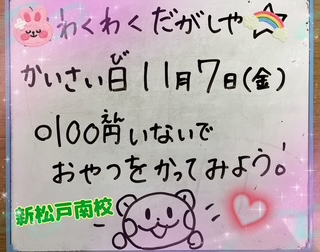 わくわくだがしや☆
かいさい日び 11月7日(金)
○100円えんいないで
おやつをかってみよう!
新松戸南校